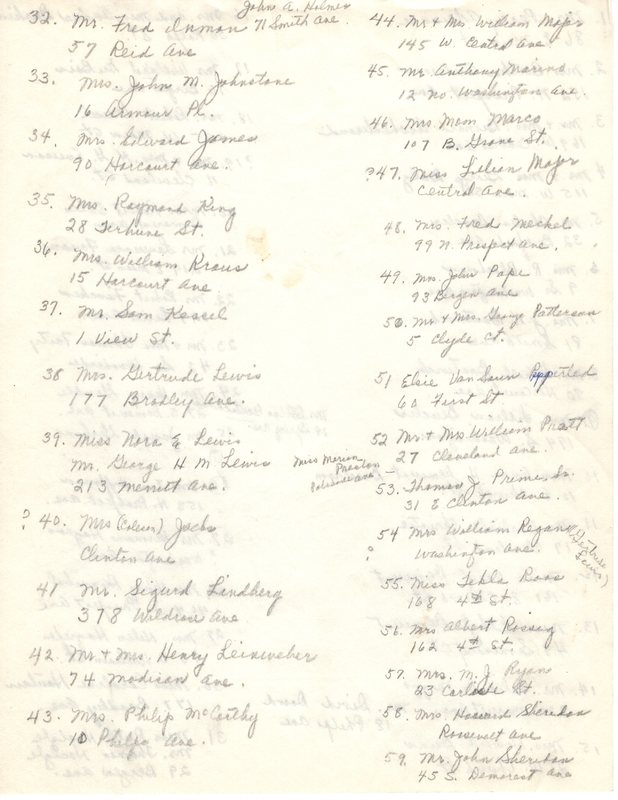 John A. Holmes
71 Smith Ave.
32. Mr. Fred Inman
57 Reid Ave
33. Mrs. John M. Johnstone
16 Armour Pl.
34. Mrs. Edward James
90 Harcourt Ave.
35. Mrs. Raymond King
28 Terhune St.
36. Mrs. William Kraus
15 Harcourt Ave.
37. Mr. Sam Kessel
1 View St.
38 Mrs. Gertrude Lewis
177 Bradley Ave.
39. Miss Nora E Lewis
Mr. George H M Lewis
213 Merritt Ave.
Miss Marion
Preston
? 40. Mrs (Coleen) Jochs
Clinton Ave
41 Mr. Sigurd Lindberg
378 Wildrose Ave
42. Mr + Mrs. Henry Leinweber
74 Madison Ave.
43. Mrs. Philip McCarthy
10 Phelps Ave.
44. Mr + Mrs William Major
145 W. Central Ave
45. Mr. Anthony Marino
12 No. Washington Ave.
46. Mrs Mom Marco
107 B. Grove St.
?47. Miss Lilian Major
Central Ave.
48. Mrs. Fred Meckel
99 N. Prospect Ave.
49. Mrs John Pape
93 Bergen Ave
50. Mr + Mrs. George Patterson
5 Clyde Ct.
51 Elsie Van Saun
60 First St
52 Mr. + Mrs William Pratt
27 Cleveland Ave.
53. Thomas J. Prime, Sr.
31 E Clinton Ave.
54 Mrs William Regan (Gertrude Lewis)
? Washington Ave.
55. Miss Tekla Roos
168 4th St.
56. Mrs Albert Rossig
162 4th St.
57. Mrs. M. J. Ryan
23 Carlisle St.
58. Mrs. Howard Sheridan
Roosevelt Ave
59. Mr. John Sheridan
45 S. Demarest Ave